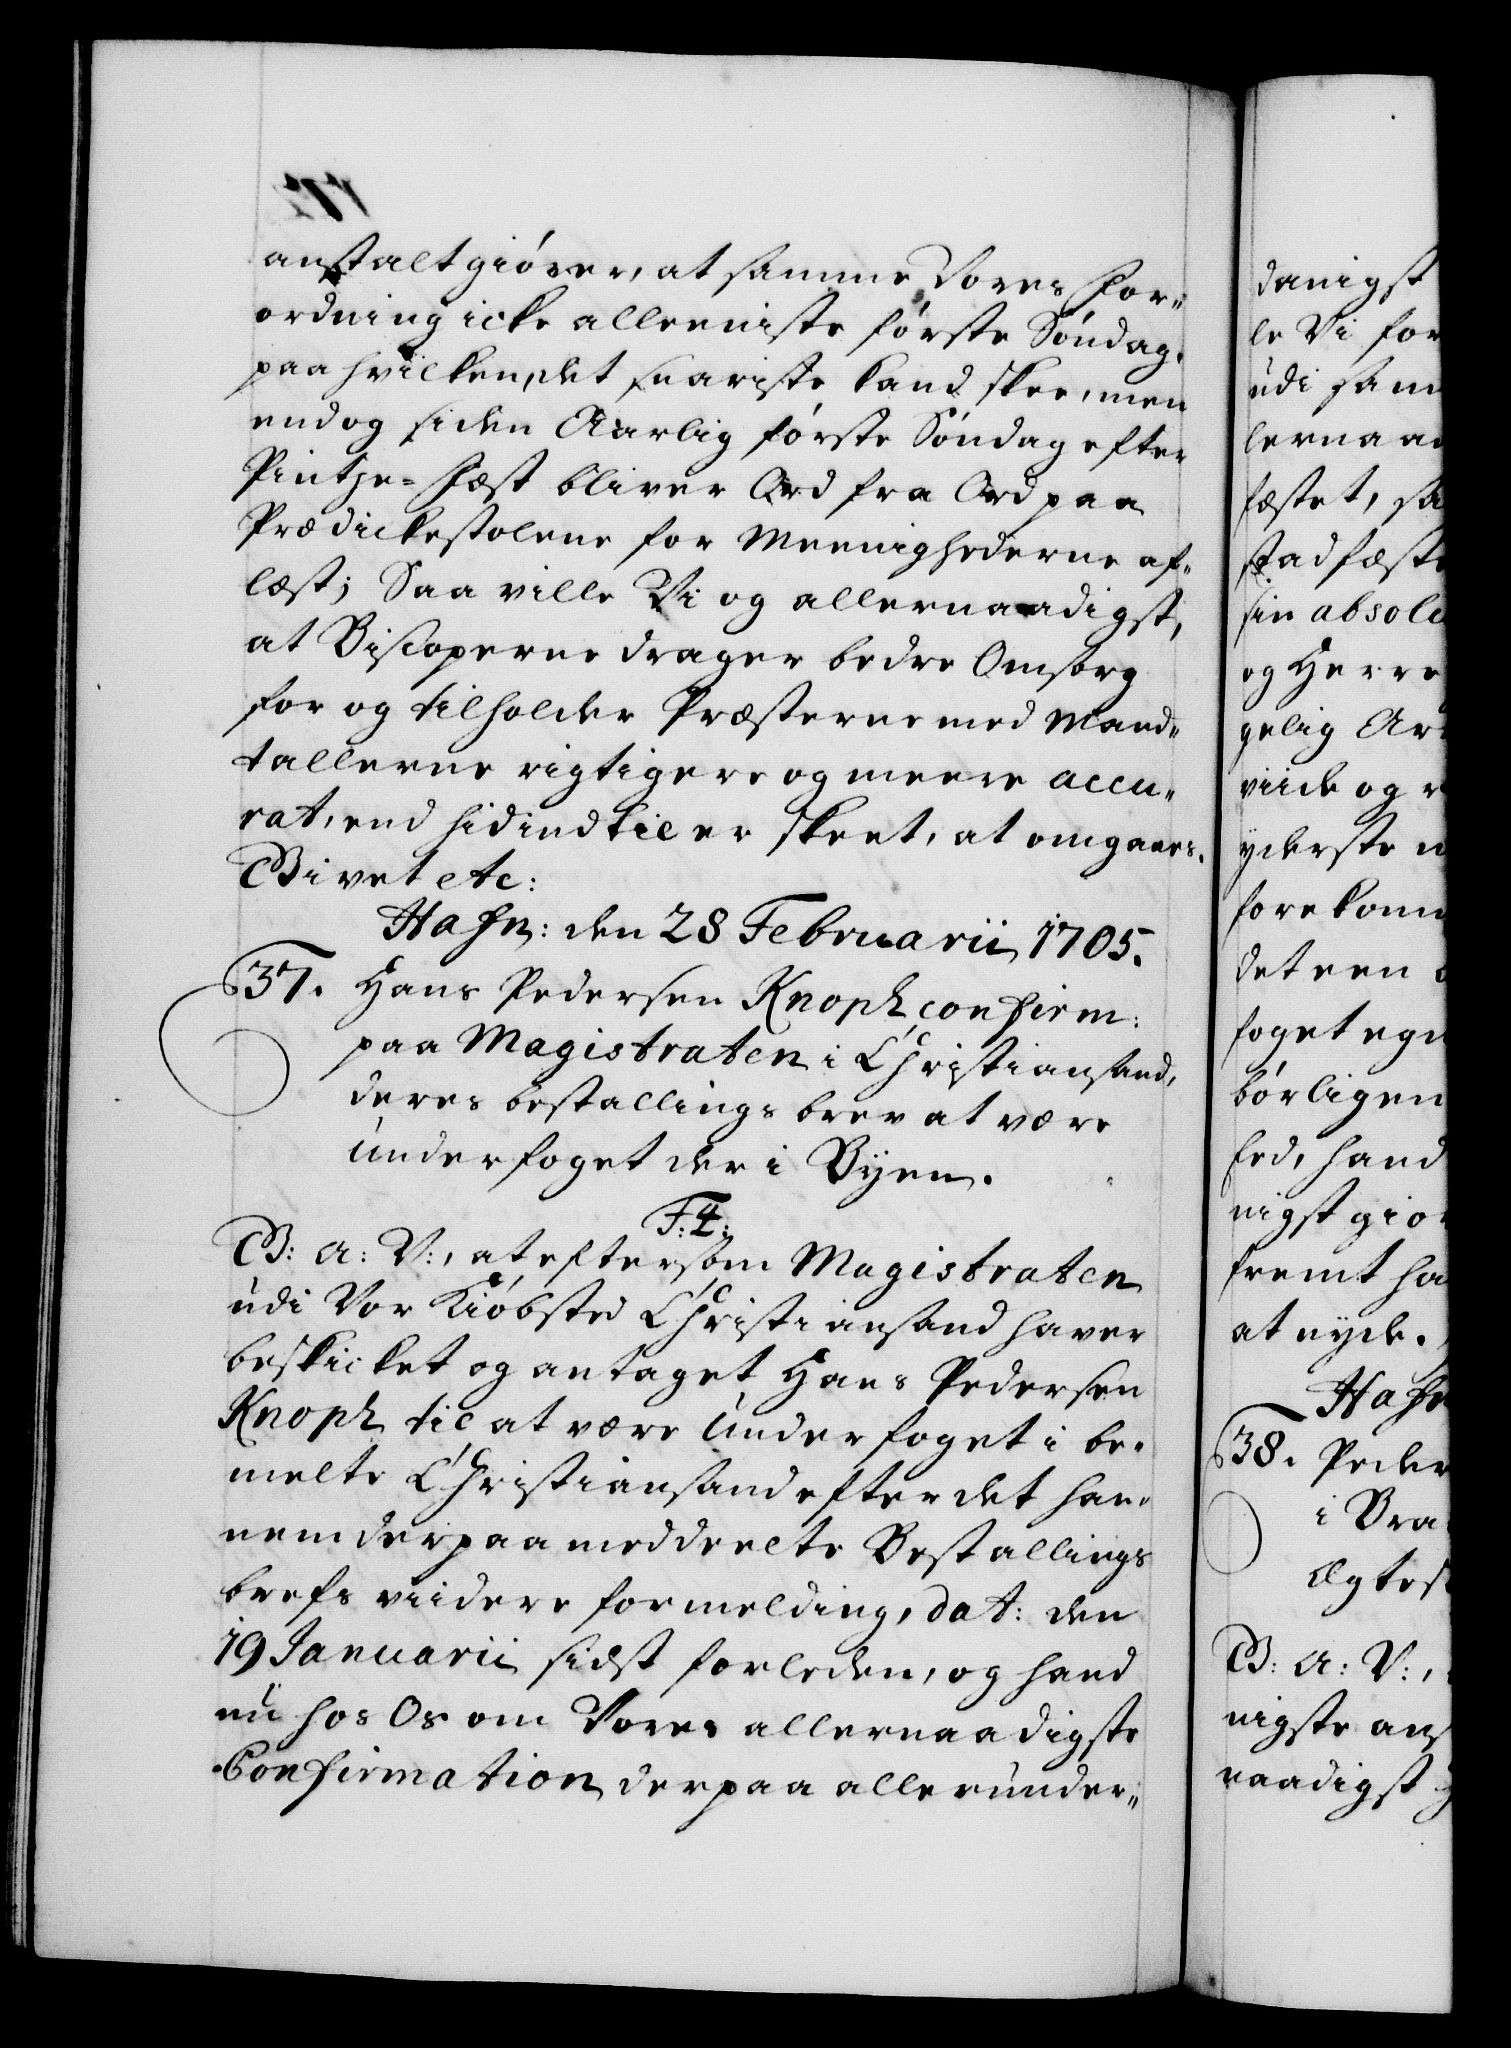 anstalt giører, at samme Vores For-
ordning icke alleeniste første Søndag,
paa hvilken det snariste kand skee, men
endog siden Aarlig første Søndag efter
Pintze-Fæst bliver Ord fra Ord paa
Prædickestolene for Meenighederne af-
læst; Saa ville Vi og allernaadigst,
at Biscoperne drager bedre Omsorg
for og tilholder Præsterne med Mand-
tallerne rigtigere og meere accu-
rat, end hidindtil er skeet, at omgaaes.
Givet etc:
Hafn: den 28 Februarii 1705.
37. Hans Pedersen Knoph confirm:
paa Magistraten i Christiansand,
deres bestallings brev at være
Underfoget der i Byen.
F: 4:
G: A: V:, at eftersom Magistraten
udi Vor Kiøbsted Christiansand haver
beskicket og antaget Hans Pedersen
Knoph til at være Underfoget i be-
melte Christiansand efter det han-
nem derpaa meddeelte Bestallings
brefs viidere formelding, dat: den
19 Januarii sidst forleden, og hand
nu hos Os om Vores allernaadigste
Confirmation derpaa allerunder-
danigst
le Vi for
udi sam
lernaa
fæstet, sa
stadfæste
sin absolu
og Herre
gelig Ar
viide og
yderste
forekom
det een
foget egn
børligen
hed, hand
nigst gior
fremt ha
at nyde.
Hafn
38. Peder
i Bra
Ægtes
G: A: V:,
nigste ans
naadigst